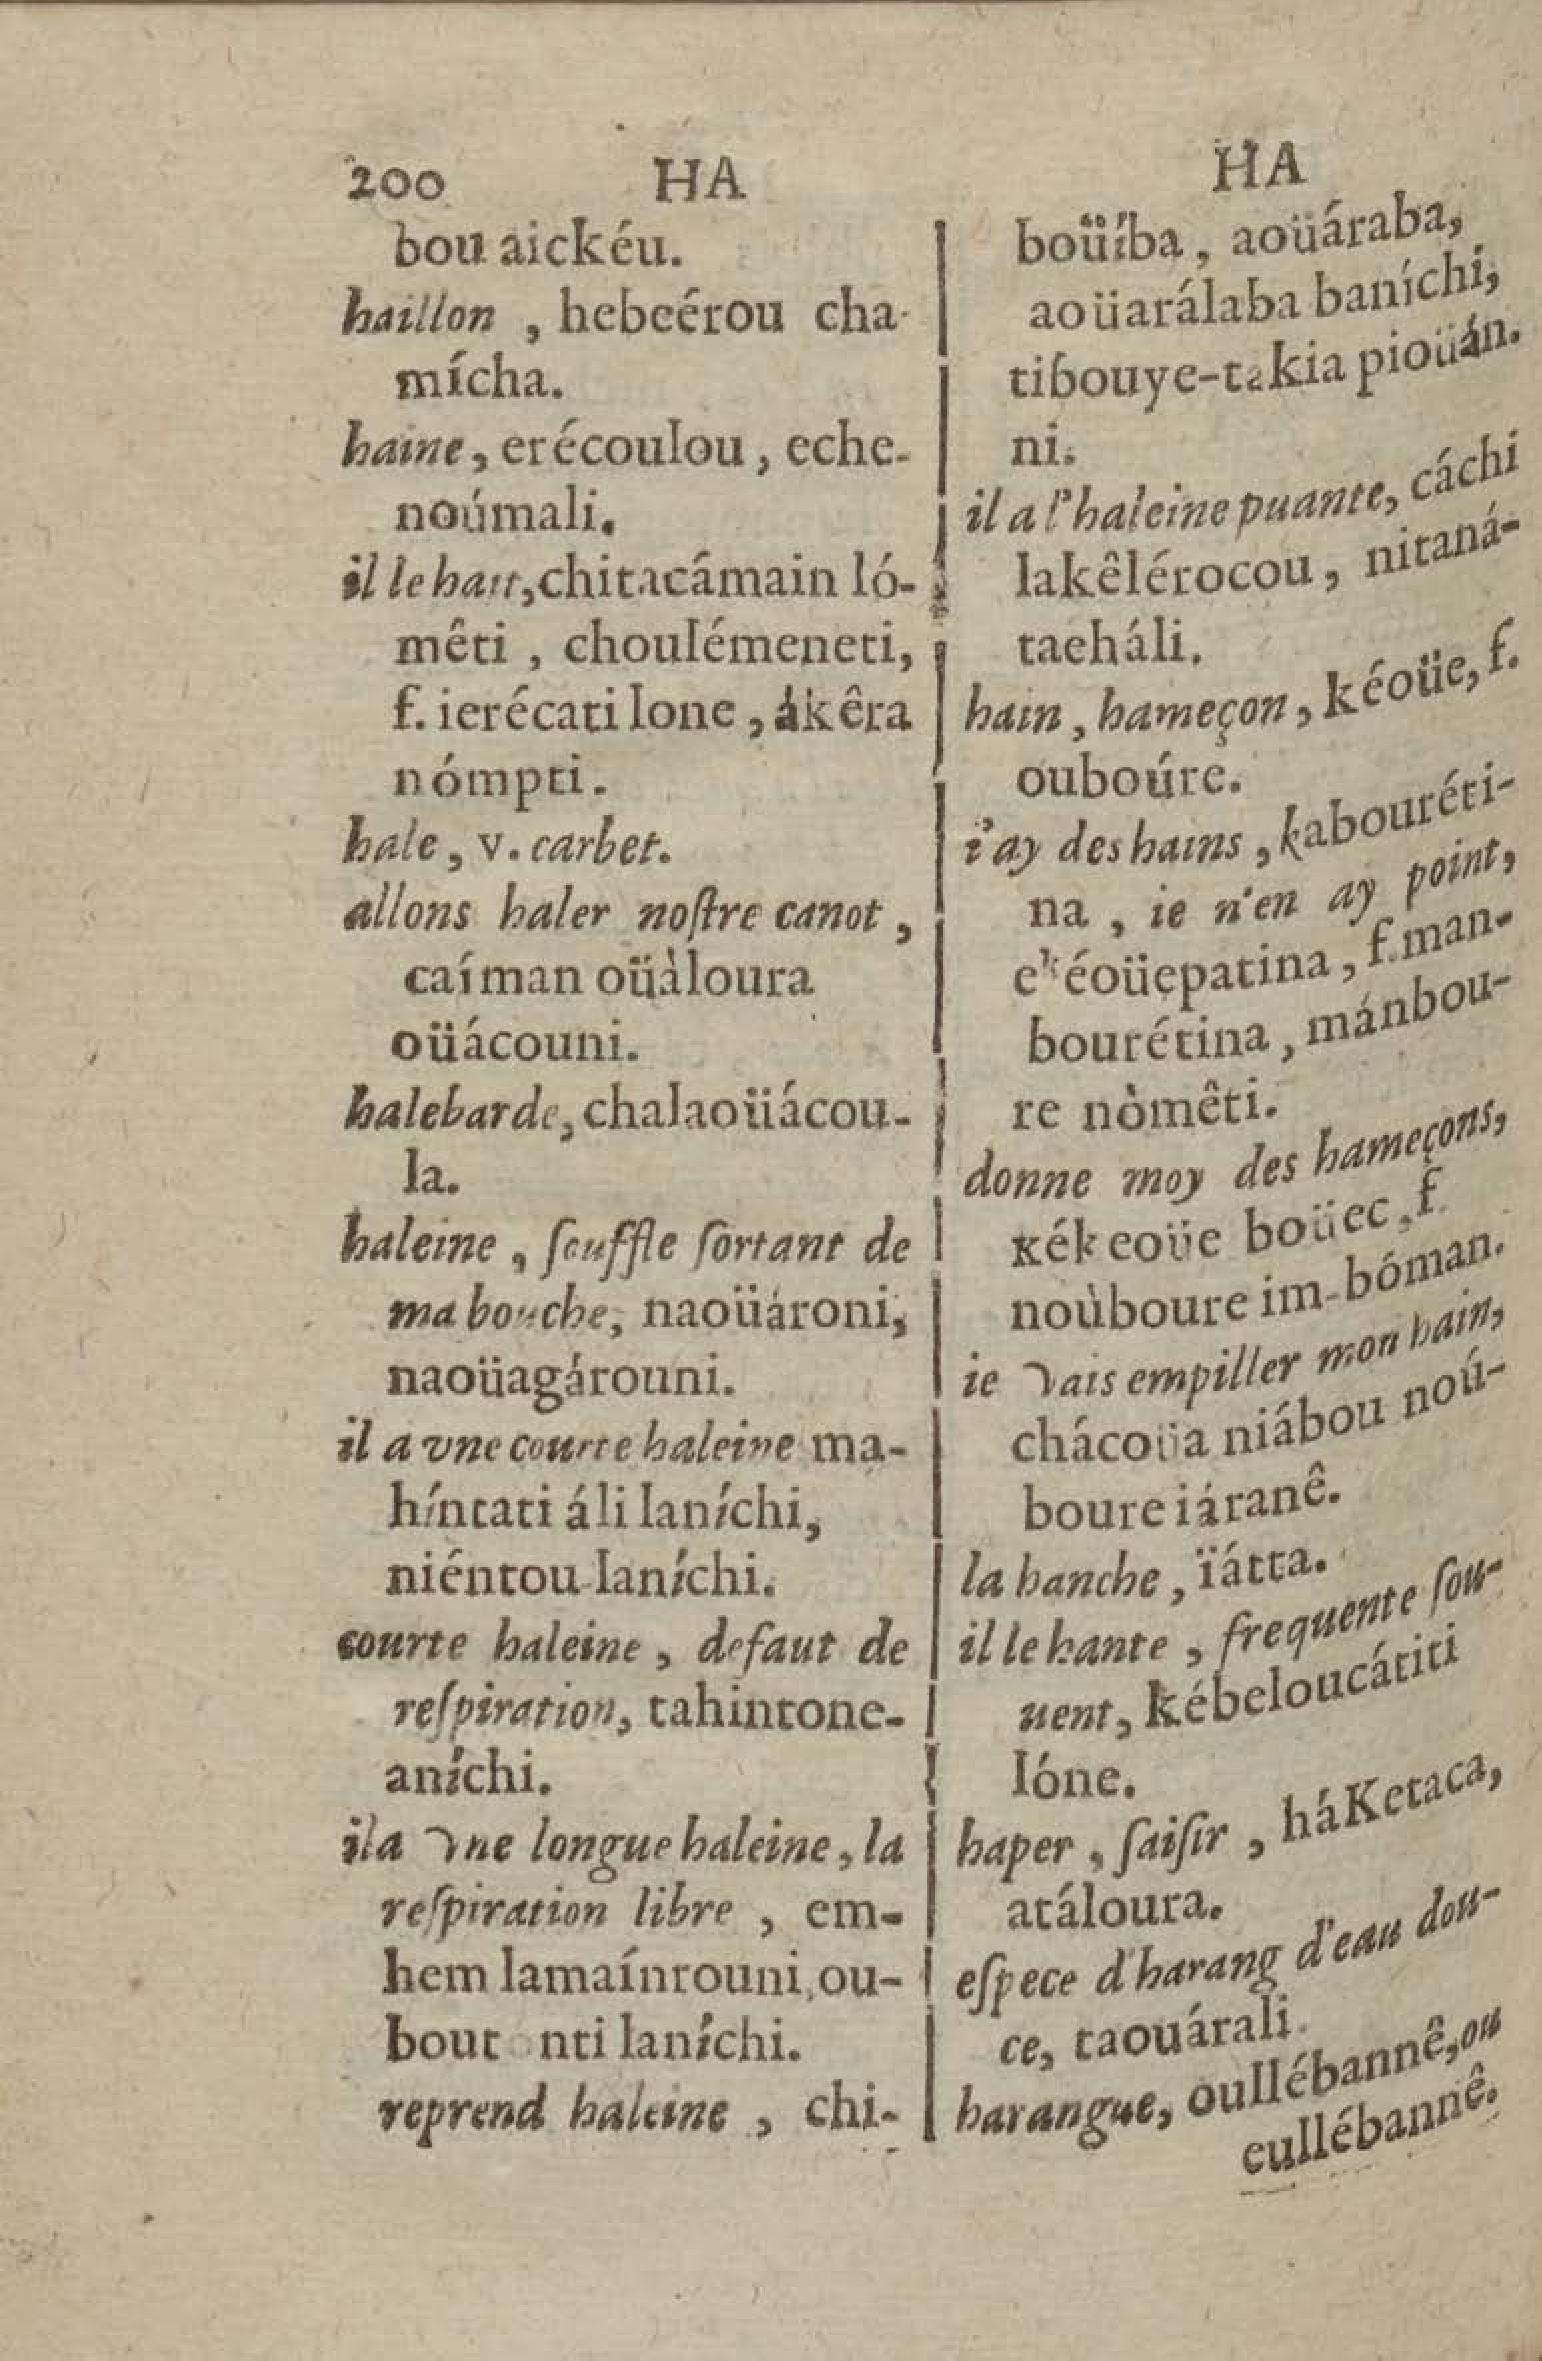 200 HA
bou aickéu.
haillon , hebeérou cha-
mícha.
haine, erécoulou, eche-
noúmali.
il le hait, chitacâmain ló-
mêti , choulémeneti,
f. ierécati lone, ákêra
nómpti.
hale, v. carbet.
allons haler noſtre canot,
caíman oüàloura
oüácouni.
halebarde, chalaoüácou-
la.
haleine, ſouffle ſortant de
ma bouche, naoüároni,
naoüagárouni.
il a vne courte haleine ma-
híntati áli laníchi,
niéntou laníchi.
courte haleine, defaut de
reſpiration, tahintone-
aníchi.
il a vne longue haleine, la
reſpiration libre , em-
hem lamaínrouni, ou-
bout nti laníchi.
reprend haleine , chi-
HA
boüíba, aoüáraba,
aoüarálaba baníchi,
tibouye-takia pioüán.
ni.
il a l'haleine puante, cáchi
lakêlérocou, nitaná-
taeháli.
hain, hameçon, kéoüe, f.
ouboúre.
i'ay des hains, kabouréti-
na , ie n'en ay point,
ekéoüepatina, f. man-
bourétina, mánbou-
re nòmêti.
donne moy des hameçons,
kékeoüe boüec, f.
noùboure im-bóman.
ie vais empiller mon hain,
chácoüa niábou noú-
boure iáranê.
la hanche, ïátta.
il le hante, frequente ſou-
uent, kébeloucátiti
lóne.
haper, ſaiſir, háKetaca,
atáloura.
eſpece d'harang d'eau dou-
ce, taouárali.
harangue, oullébannê, ou
eullébannê.